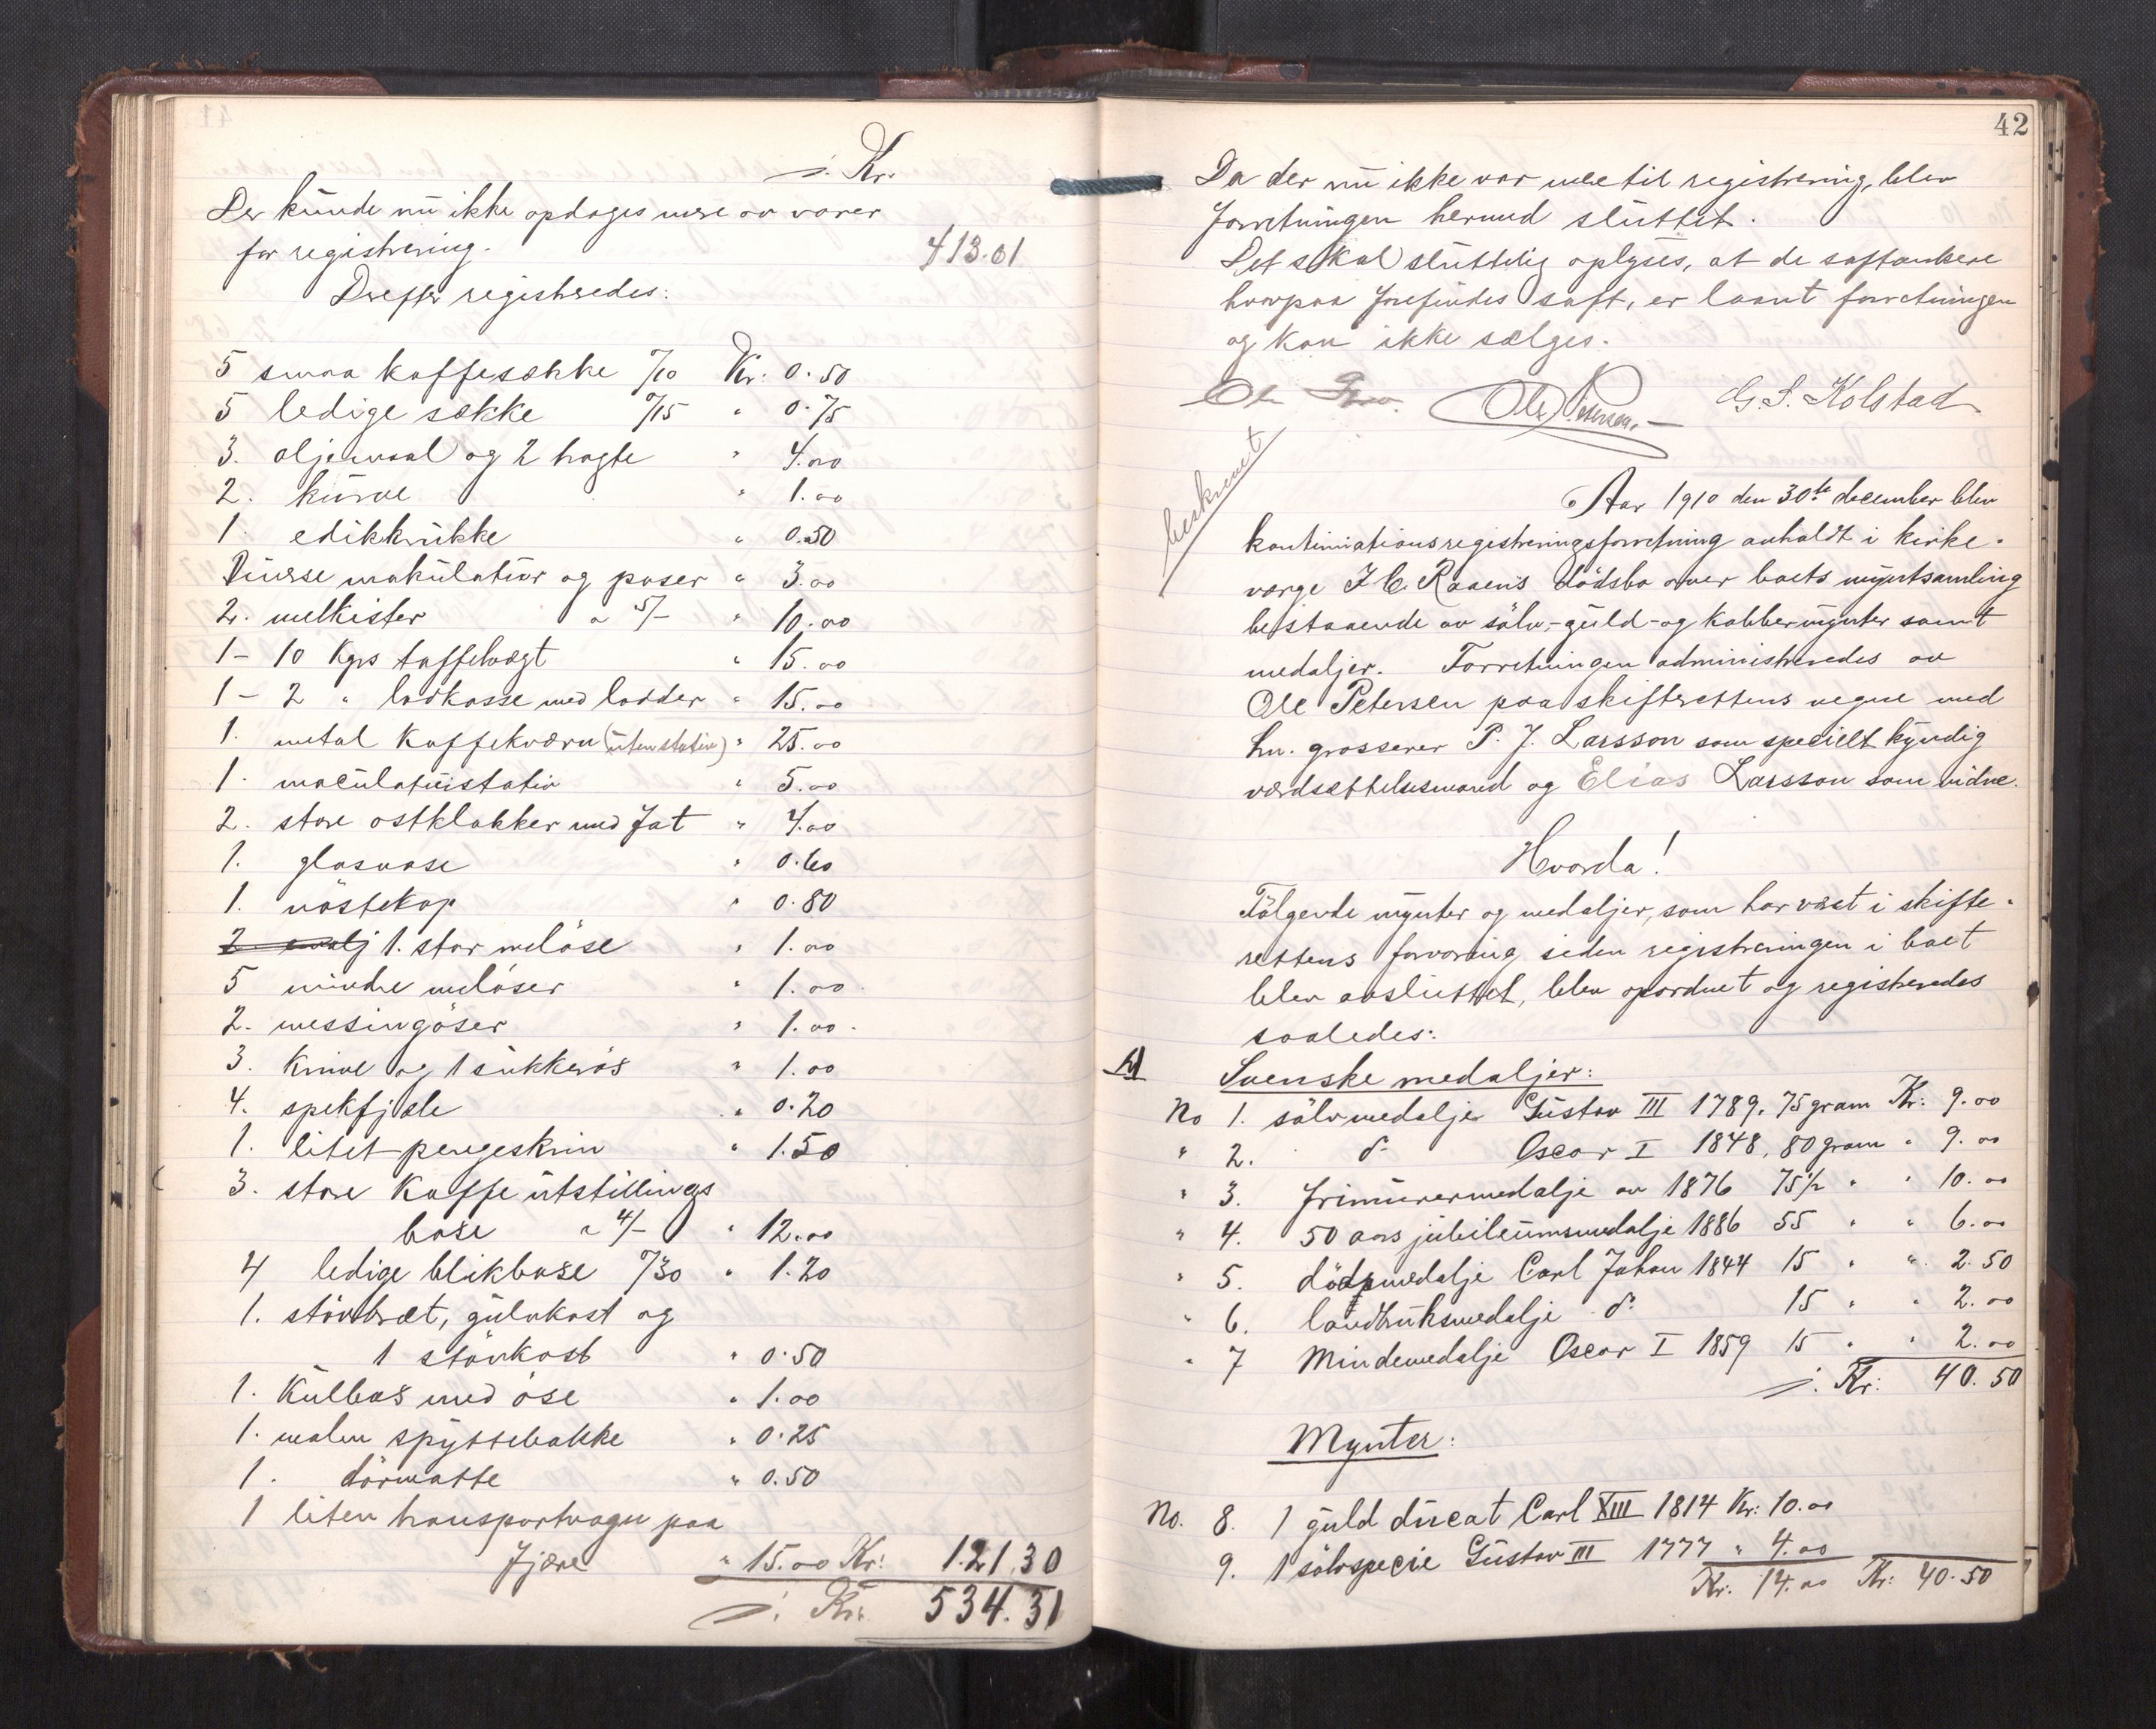 ∴ Kr.
Der kunde nu ikke opdages mere av varer
for registrering. 413.01
Derefter registreredes:
5 smaa kaffesække 7/10 Kr: 0.50
5 ledige sække 7/15 " 0.75
3. oljemaal og 2 tragte " 4.00
2. kurve " 1.00
1. edikkrukke " 0.50
Diverse makulatur og poser " 3.00
2. melkister a 5/- " 10.00
1- 10 Kgrs taffelvægt " 15.00
1- 2 " lodkasse med lodder " 15.00
1. metal Kaffekværn (uten stativ) " 25.00
1. maculaturstativ " 5.00
2. store ostklokker med fat " 4.00
1. glasvase " 0.60
1. 0.80
1. stor meløse " 1.00
5 mindre meløser " 1.00
2. messingøser " 1.00
3. Knive og 1 sukkerøs " 1.00
4. spekfjæle " 0.20
1. litet pengeskrin " 1.50
3. store Kaffe utstillings
base a 4/- " 12.00
4 ledige blikbase 7/30 " 1.20
1. støvbræt, gulvkost og
1 støvkost " 0.50
1. Kulbas med øse " 1.00
1. malm spyttebakke " 0.25
1. dørmatte " 0.50
1 liten transportvogn paa
fjære " 15.00 Kr: 121.30
∴ Kr. 534.31
42
Da der nu ikke var mere til registrering, blev
forretningen hermed sluttet.
Det skal sluttelig oplyses, at de saftankere
hvorpaa forefindes saft, er laant forretningen
og kan ikke sælges.
Ole Petersen. G. S. Kolstad
beskrevet
Aar 1910 den 30te december blev
kontinuationsregistreringsforretning avholdt i kirke-
værge J. C. Raaens dødsbo over boets myntsamling
bestaaende av sølv,- guld- og kobbermynter samt
medaljer. Forretningen administreredes av
Ole Petersen paa skifterettens vegne med
hr. grosserer P. J. Larsson som specielt kyndig
værdsættelsesmand og Elias Larsson som vidne.
Hvorda!
Følgende mynter og medaljer, som har vært i skifte-
rettens forvaring siden registreringen i boet
blev avsluttet, blev opordnet og registreredes
saaledes:
A Svenske medaljer:
No 1. sølvmedalje Gustav III 1789. 75 gram Kr: 9.00
" 2. do Oscar I 1848, 80 gram " 9.00
" 3. frimurermedalje av 1876 75½ " " 10.00
" 4. 50 aars jubileumsmedalje 1886 55 " " 6.00
" 5. dødsmedalje Carl Johan 1844 15 " " 2.50
" 6. landbruksmedalje do 15 " " 2.00
" 7 Mindemedalje Oscar I 1859 15 " " 2.00
∴ Kr: 40.50
Mynter:
No. 8. 1 guld ducat Carl XIII 1814 Kr: 10.00
9. 1 sølvspecie Gustav III 1777 " 4.00
Kr. 14.00 Kr: 40.50